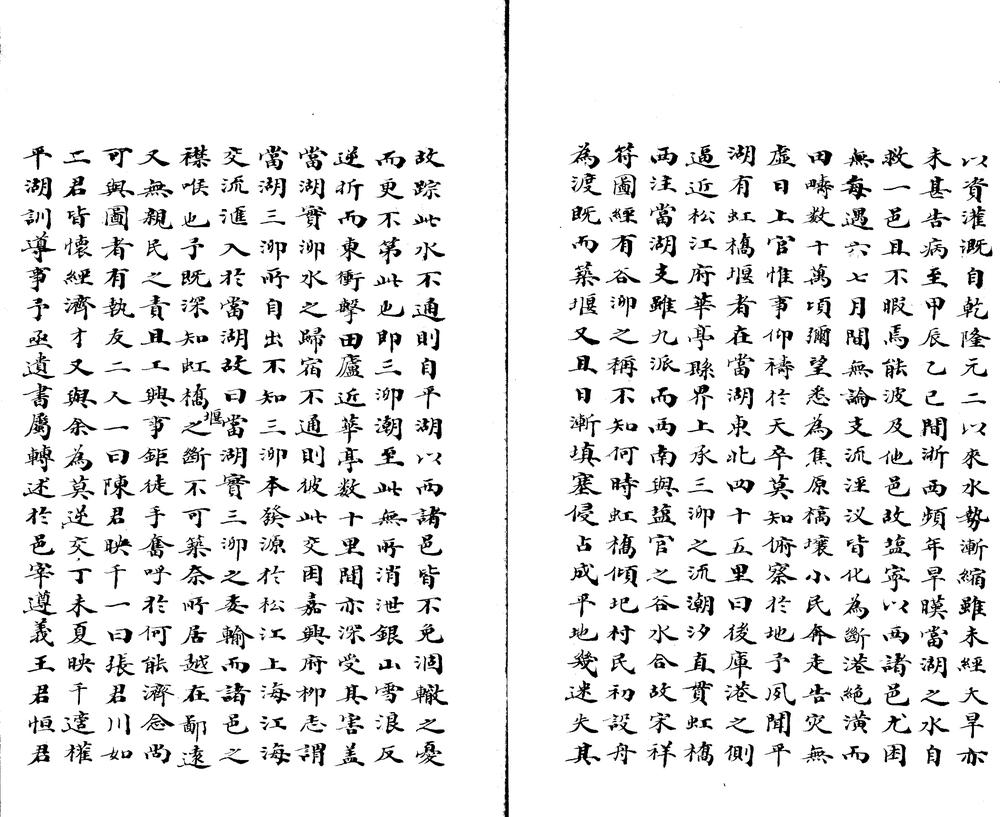 以資灌溉自乾隆元二以來水勢漸縮雖未經大旱亦
未甚告病至甲辰乙巳間浙西頻年旱暵當湖之水自
救一邑且不暇焉能波及他邑故塩寧以西諸邑尤困
無每遇六七月間無論支流涇汊皆化為斷港絕潢而
田疇数十萬頃彌望悉為焦原槁壤小民奔走告灾無
虛日上官惟事仰禱於天卒莫知俯察於地予夙聞平
湖有虹橋堰者在當湖東北四十五里曰後庫港之側
逼近松江府華亭縣界上承三泖之流潮汐直貫虹橋
而注當湖支雖九派而西南與鹽官之谷水合故宋祥
符圖經有谷泖之稱不知何時虹橋傾圯村民初設舟
為渡既而築堰又且日漸填塞侵占成平地幾迷失其
故踪此水不通則自平湖以西諸邑皆不免涸轍之憂
而更不第此也即三泖潮至此無所消泄銀山雪浪反
逆折而東衝擊田廬近華亭数十里間亦深受其害盖
當湖實泖水之歸宿不通則彼此交困嘉興府柳志謂
當湖三泖所自出不知三泖本發源於松江上海江海
交流滙入於當湖故曰當湖實三泖之委輸而諸邑之
襟喉也予既深知虹橋堰之斷不可築奈所居越在鄙遠
又無親民之責且工興事鉅徒手奮呼於何能濟念尚
可與圖者有執友二人一曰陳君映千一曰張君川如
二君皆懷經濟才又與余為莫逆交丁未夏映千適權
平湖訓導事予亟遺書屬轉述於邑宰遵義王君恒君